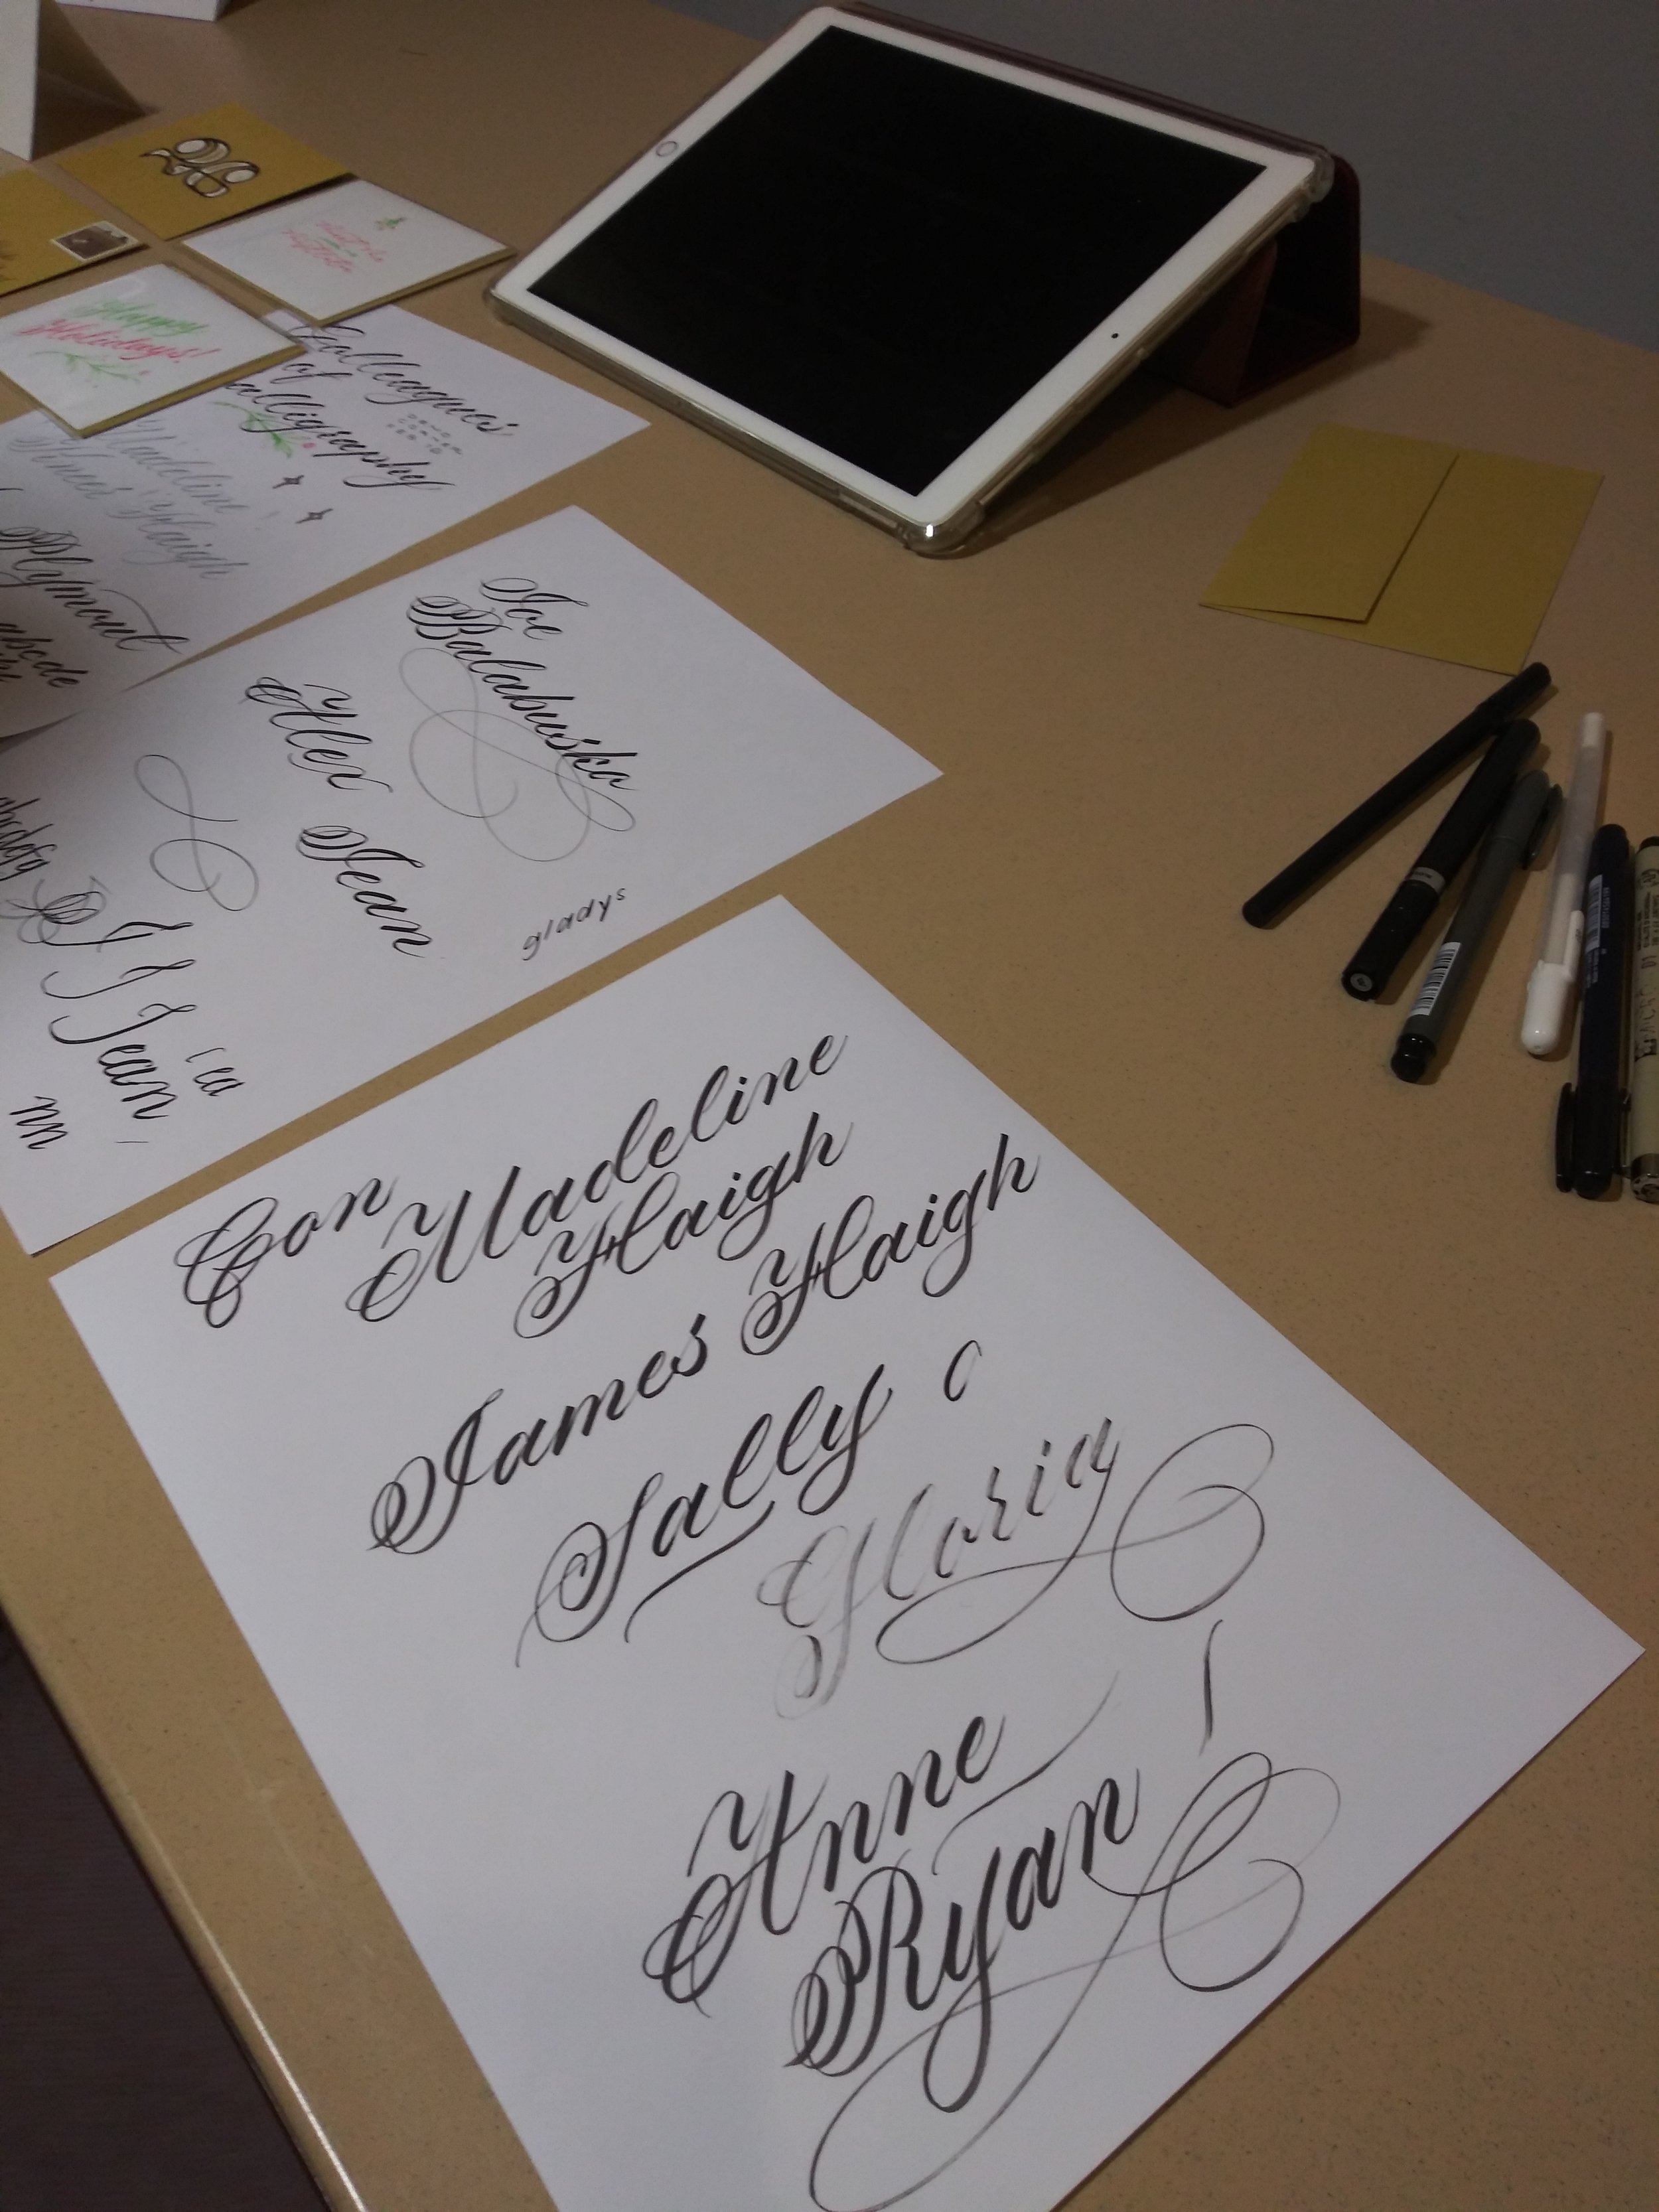 Happy
Holidays!
Colleagues
of
Calligraphy
Madeline
Haigh
Plymout
abcde
Joe
Balabuska
Alex
Jean
gladys
abcdefg
J J Jean
ea
nn
Con
Madeline
Haigh
James Haigh
Sally
Gloria
Anne
Ryan